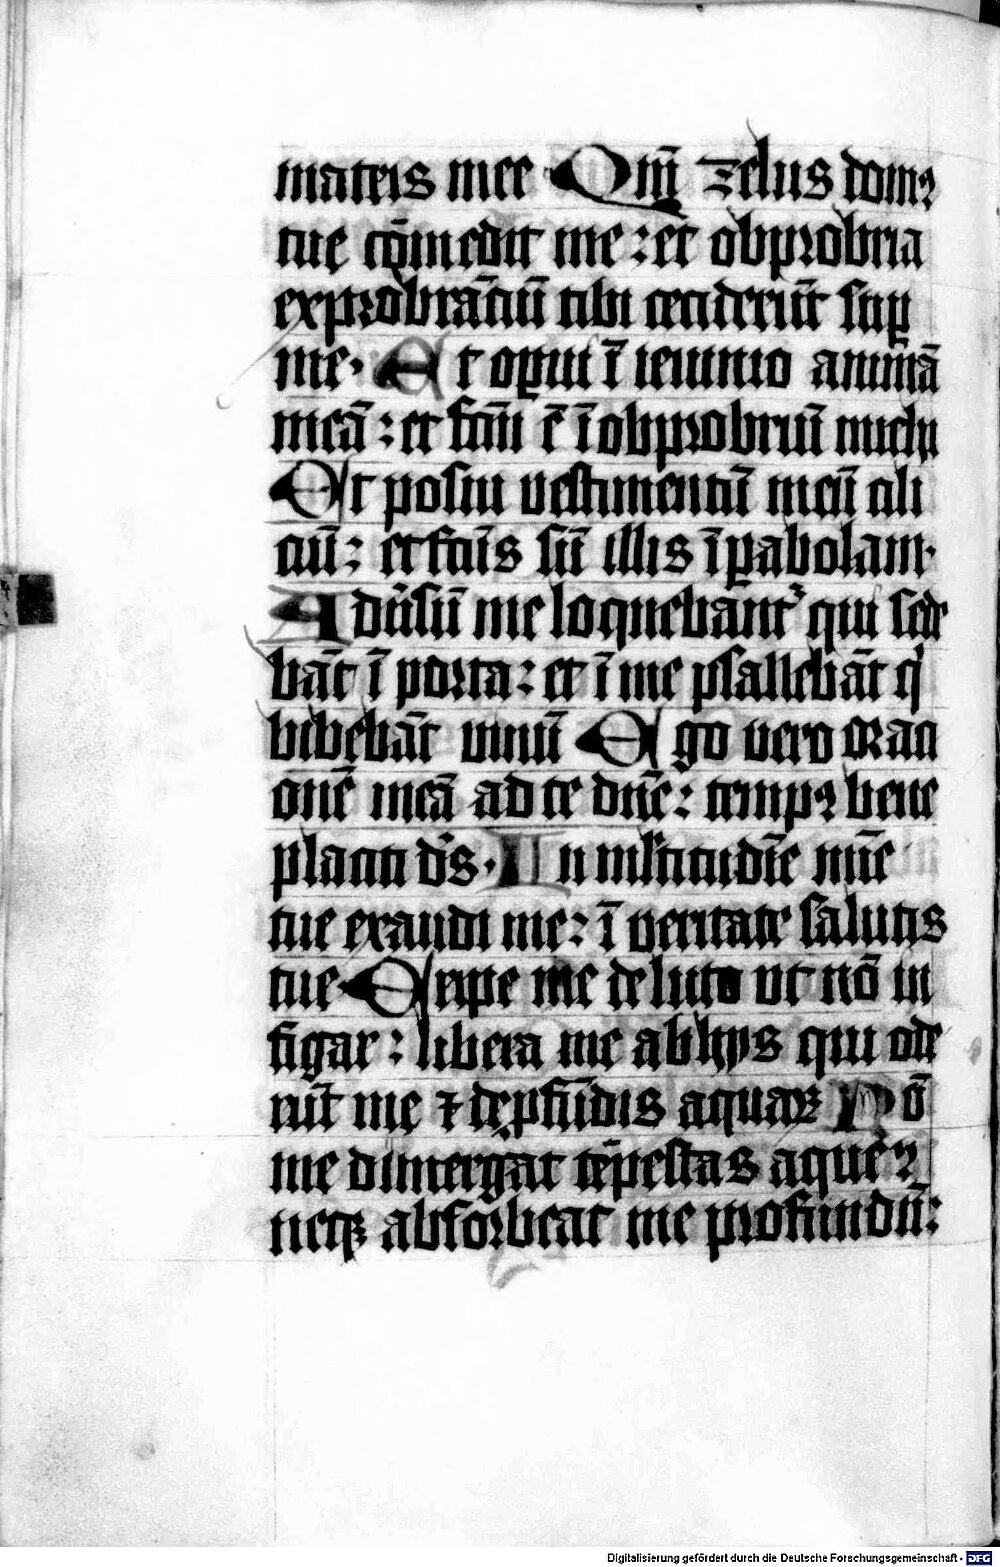 matris mee Qm̄ zelus domꝰ
tue cōmedit me : et obprobria
exprobrātiū tibi ceciderūt sup̱
me. Et oꝑui ī ieiunio animā
meā : et fc̄m ē ī obprobriū michi
Et posui vestimentū meū cili
ciū : et fc̄us sū illis ī ꝑabolam.
Aduˀsū me loquebantˀ qui sede
bāt ī porta : et ī me psallebāt q̇
bibebāt vinū Ego vero oracī
onē meā ad te dn̄e : tempꝰ bene
placiti dˢs. In mˡtitudīe mīe
tue exaudi me : ī veritate salutis
tue Eripe me de luto vt nō in
figar : libera me ab hijs qui ode
rūt me ⁊ de ꝓfūdis aquaꝝ Nō
me dimergat tēpestas aque ?
neqꝫ absorbeat me profundū :
Digitalisierung gefördert durch die Deutsche Forschungsgemeinschaft - DFG